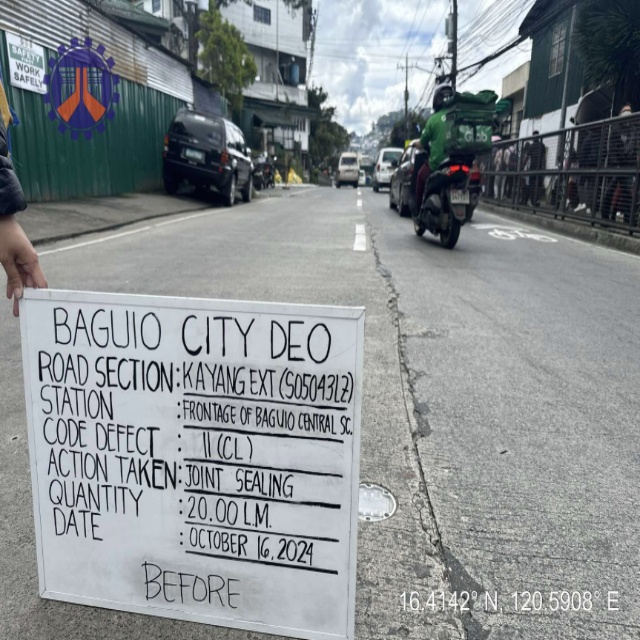 SAFETY
WORK
SAFELY
BAGUIO CITY DEO
ROAD SECTION: KAYANG EXT (S05043LZ)
STATION : FRONTAGE OF BAGUIO CENTRAL SC.
CODE DEFECT : 11 (CL)
ACTION TAKEN: JOINT SEALING
QUANTITY : 20.00 L.M.
DATE : OCTOBER 16, 2024
BEFORE
16.4142° N, 120.5908° E